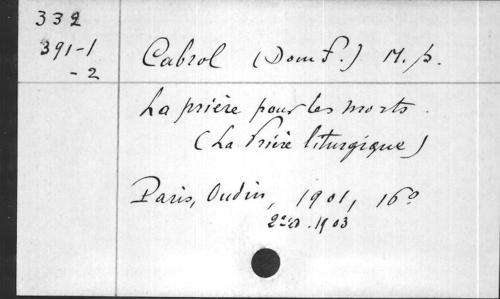 332
391-1
-2
Cabrol (Dom F.) M. b.
La prière pour les morts.
(La Prière liturgique)
Paris, Oudin, 1901, 16°
2e éd. 1903